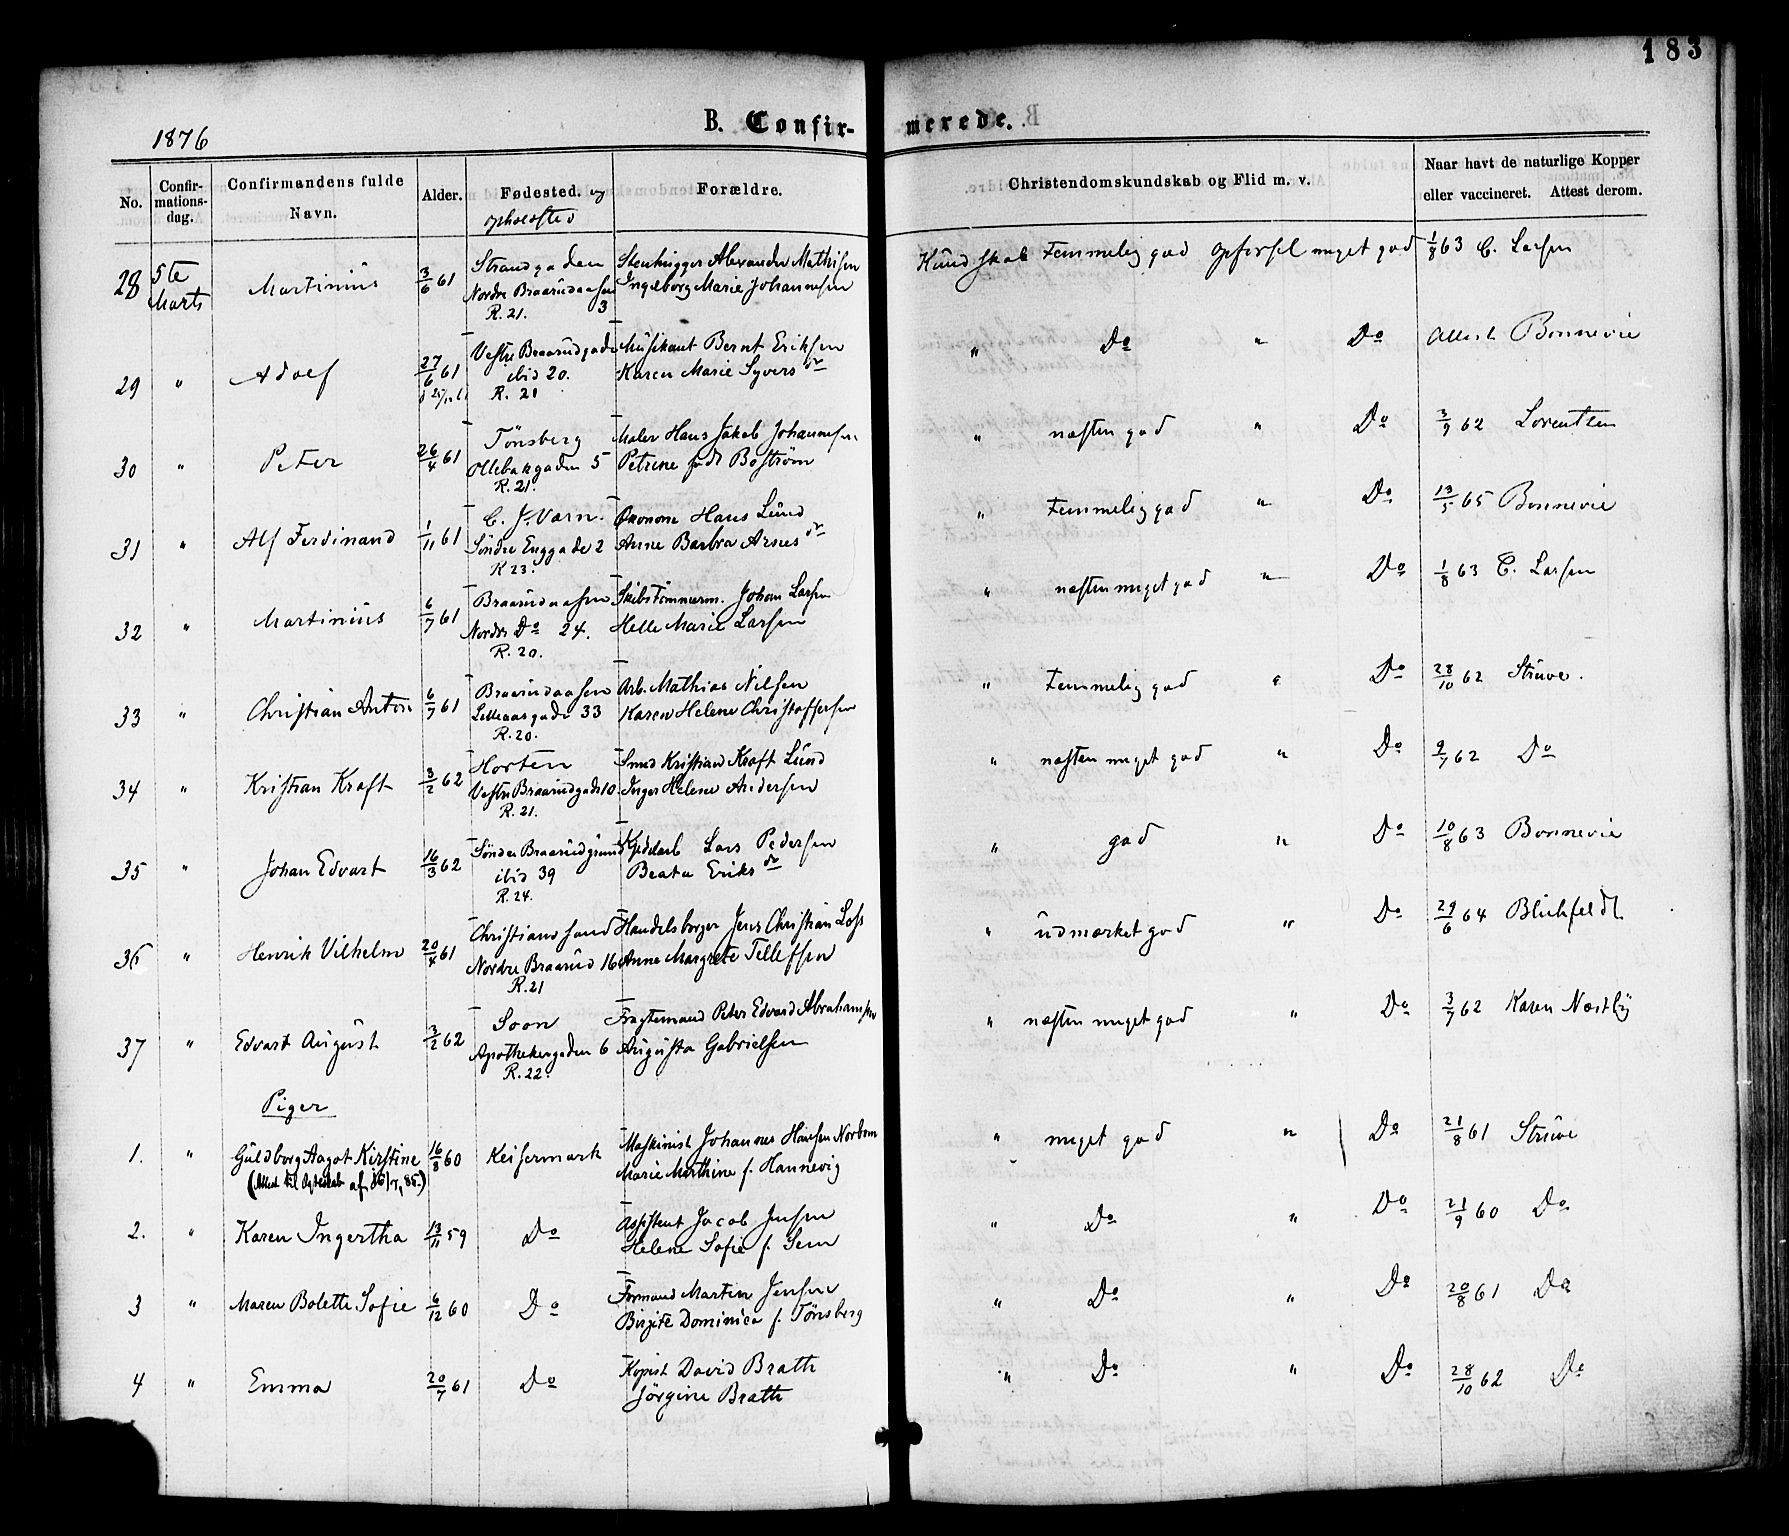 183
1876
B. Confirmerede.
No.
Confir-
mations-
dag.
Confirmandens fulde
Navn.
Alder.
Fødested. og
opholdsted
Forældre.
Christendomskundskab og Flid m. v.
Naar havt de naturlige Kopper
eller vaccineret. Attest derom.
28 5te Marts Martinius 3/6 61
Strandgaden
Nordre Braarudaasen 3
R. 21.
Stenhugger Alexander Mathisen
Ingeborg Marie Johannesen
Kundskab Temmelig god Opførsel meget god 1/8 63 C. Larsen
29 " Adolf 27/6 61
Vestre Braarudgade
ibid 20.
R. 21
Musikant Bernt Eriksen
Karen Marie Syversdr
" Do " Do Attest Bonnevie
30 " Peter 26/4 61
Tönsberg
Ollebakgaden 5
R. 21.
Maler Hans Jakob Johannesen
Petrine født Boström
" næsten god " Do 3/9 62 Lorentzen
31 " Alf Ferdinand 1/11 61
C. J.Værn.
Søndre Enggade 2
R 23.
Økonom Hans Lund
Anne Barbra Arnesdr
" Temmelig god " Do 13/5 65 Bonnevie
32 " Martinius 6/7 61
Braarudaasen
Nordre Do 24.
R. 20.
Skibstømmerm. Johan Larsen
Helle Marie Larsen
" næsten meget god " Do 1/8 63 C. Larsen
33 " Christian Anton 6/7 61
Braarudaasen
Lilleaasgade 33
R. 20.
Arb. Mathias Nilsen
Karen Helene Christoffersen
" Temmelig god " Do 28/10 62 Struve.
34 " Kristian Kraft 3/2 62
Horten
Vestre Braarudgade 10
R. 21.
Smed Kristian Kraft Lund
Inger Helene Andersen
" næsten meget god " Do 9/7 62 Do
35 " Johan Edvart 16/3 62
Søndre Braarudgrund
ibid 39
R. 24.
Lars Pedersen
Beata Eriksdr
" god " Do 10/8 63 Bonnevie
36 " Henrik Vilhelm 20/4 61
Christianssand
Nordre Braarud 16
R. 21
Handelsborger Jens Christian Loss
Anne Margrete Tellefsen
" udmærket god " Do 29/6 64 Blichfeldt
37 " Edvart August 3/2 62
Soon
Apothekergaden 6
R. 22.
Fragtemand Peter Edvard Abrahamsen
Augusta Gabrielsen
" næsten meget god " Do 3/7 62 Karen Næstby
Piger
1. " Guldborg Aagot Kirstine 16/8 60 Keisermark
(Attest til Ægteskab af 85.)
Maskinist Johannes Hansen Norbom
Marie Marthine f. Hannevig
" meget god " Do 21/8 61 Struve
2. " Karen Ingertha 13/11 59 Do
Assistent Jacob Jensen
Helene Sofie f. Sem
" Do " Do 21/9 60 Do
3 " Maren Bolette Sofie 6/12 60 Do
Formand Martin Jensen
Birgite Dominica f. Tönsberg
" Do " Do 20/8 61 Do
4 " Emma 20/7 61 Do
Kopist David Brath
Jörgine Brath
" Do " Do 28/10 62 Do